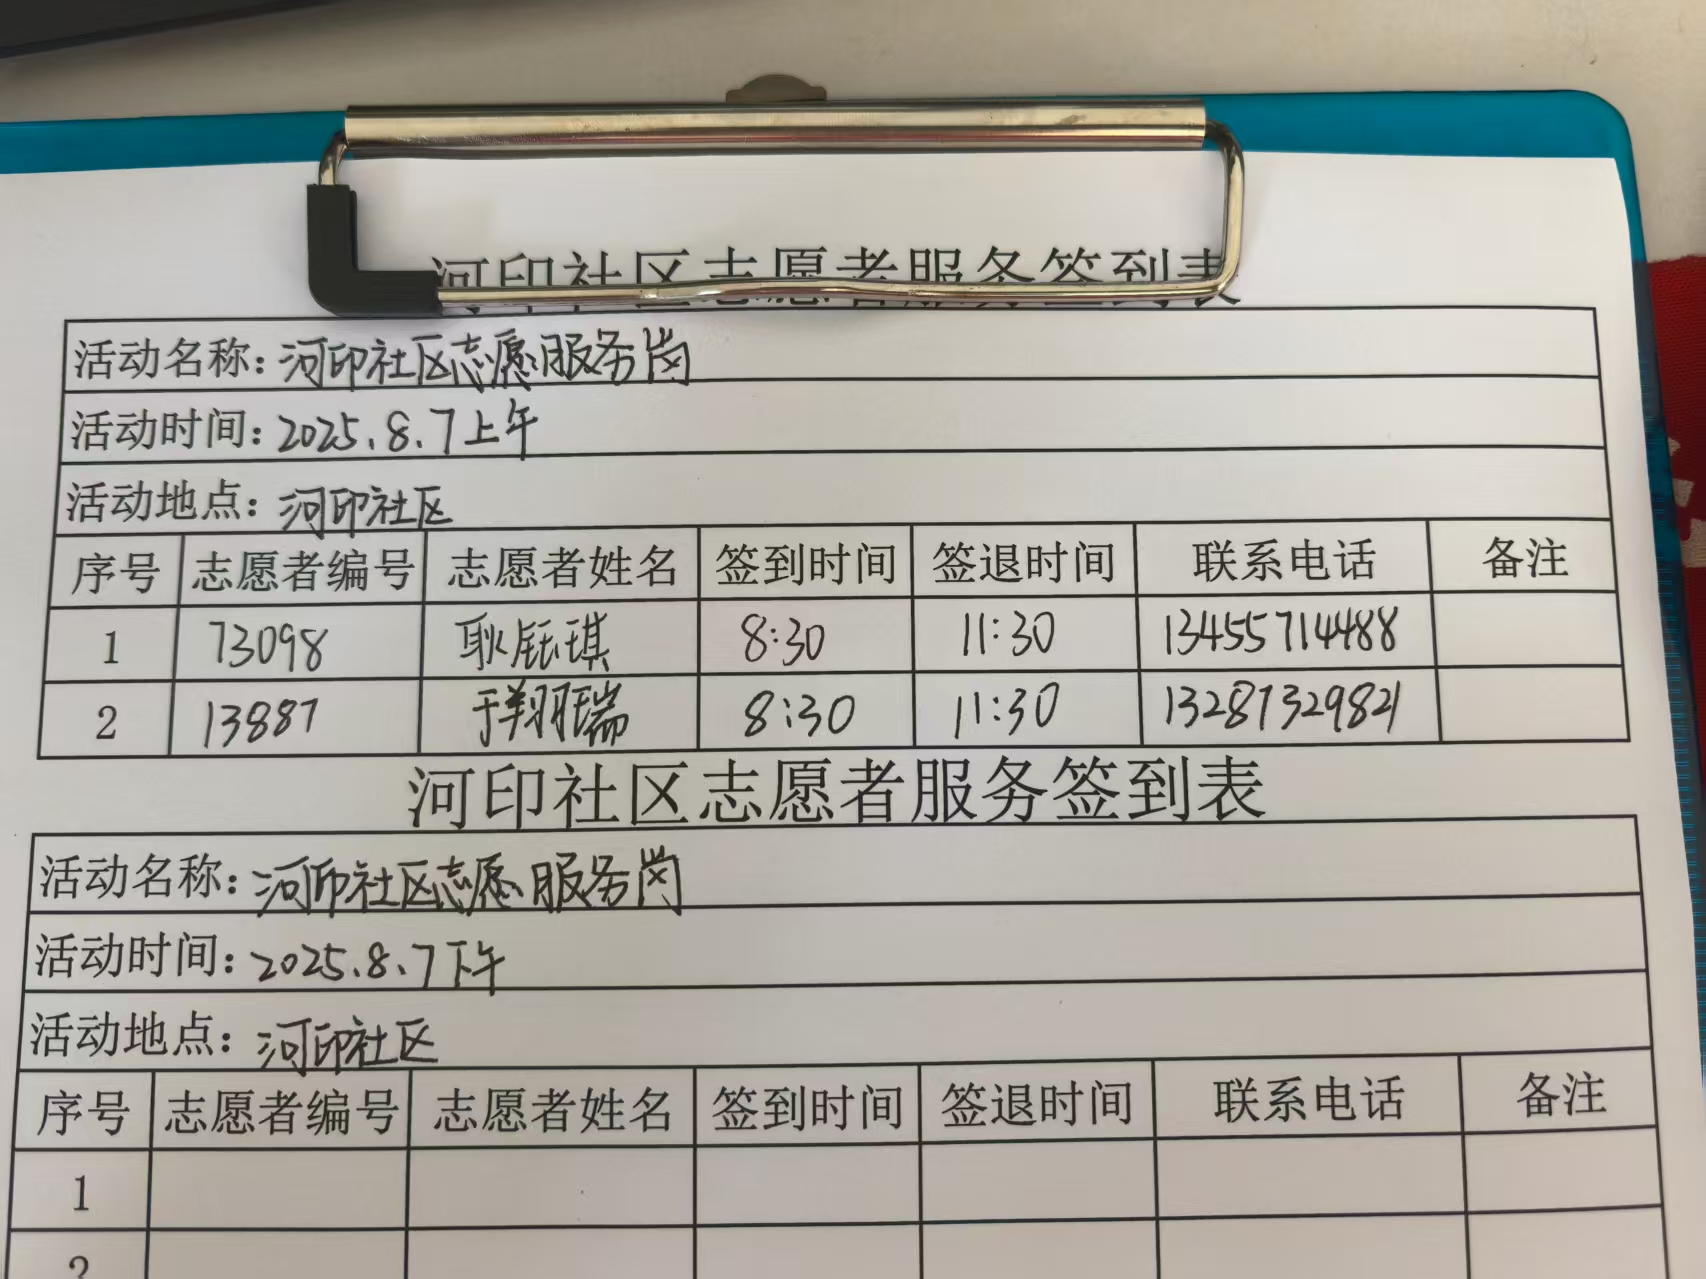 河印社区志愿者服务签到表
活动名称: 河印社区志愿服务岗
活动时间: 2025.8.7上午
活动地点: 河印社区
序号 志愿者编号 志愿者姓名 签到时间 签退时间 联系电话 备注
1 73098 耿钰琪 8:30 11:30 13455714488
2 13887 于翔瑞 8:30 11:30 13287329821
河印社区志愿者服务签到表
活动名称: 河印社区志愿服务岗
活动时间: 2025.8.7下午
活动地点: 河印社区
序号 志愿者编号 志愿者姓名 签到时间 签退时间 联系电话 备注
1
2